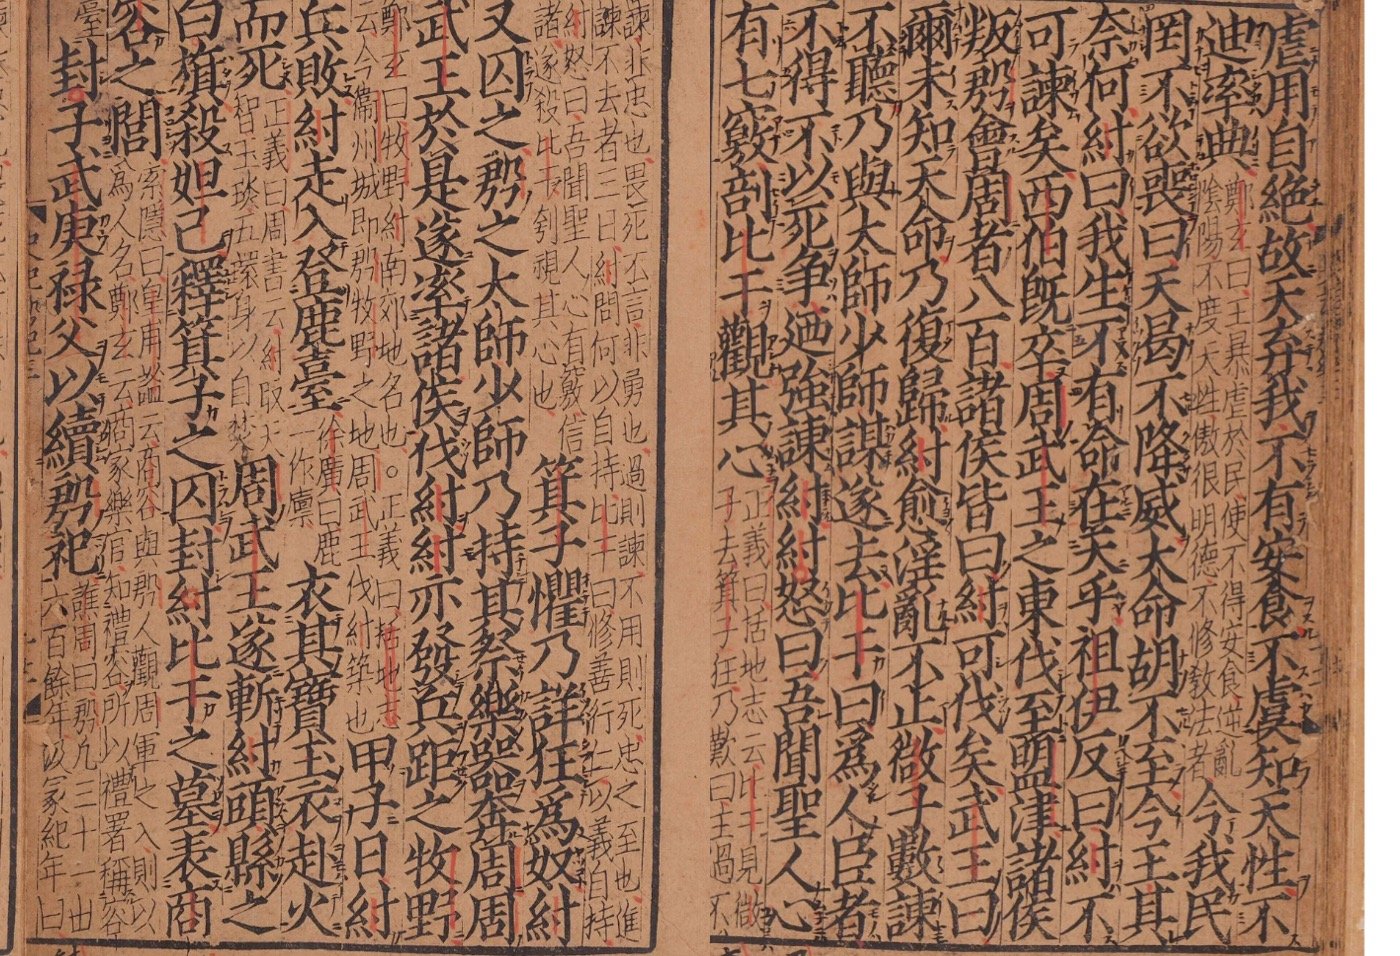 虐用自絶故天弃我不有安食不虞知天性不
迪率典
鄭玄曰王暴虐於民使不得安食逆亂
隂陽不度天性傲很明德不修敎法者
今我民
罔不欲喪曰天曷不降威大命胡不至今王其
奈何紂曰我生不有命在天乎祖伊反曰紂不
可諫矣西伯旣卒周武王之東伐至盟津諸侯
叛殷會周者八百諸侯皆曰紂可伐矣武王曰
爾未知天命乃復歸紂愈淫亂不止微子數諫
不聽乃與太師少師謀遂去比干曰爲人臣者
不得不以死争廼強諫紂紂怒曰吾聞聖人心
有七竅剖比干觀其心
正義曰括地志云比干見微
子去箕子狂乃歎曰主過不
諫非忠也畏死不言非勇也過則諫不用則死忠之至也進
諫不去者三日紂問何以自持比干曰修善行仁以義自持
紂怒曰吾聞聖人心有竅信
諸遂殺比干刳視其心也
箕子懼乃詳狂爲奴紂
又囚之殷之大師少師乃持其祭樂器奔周周
武王於是遂率諸侯伐紂紂亦發兵距之牧野
鄭玄曰牧野紂南郊地名也○正義曰括地志
云今衞州城即殷牧野之地周武王伐紂築也
甲子日紂
兵敗紂走入登鹿臺
徐廣曰鹿
一作廩
衣其寶玉衣赴火
而死
正義曰周書云紂取天
智玉琰五環身以自焚
周武王遂斬紂頭縣之
白旗殺妲己釋箕子之囚封紂比干之墓表商
容之閭
索隱曰皇甫謐云商容與殷人觀周軍之入則以
爲人名鄭玄云商家樂官知禮容所以禮署稱容
臺
封子武庚禄父以續殷祀
譙周曰殷凡三十一世
六百餘年汲冢紀年曰